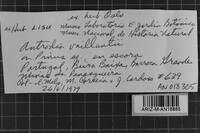 ex hub Oslo
ex Hub LISU, Museu Laboratório e Jardim Botânico
Museu Nacional de História Natural
Antrodia vaillantii
on Pinus sp. on escora
Portugal, Beira Baixa, Barroca Grande
Minas da Panasqueira
Col. I. Melo, M. Correia & J. Cardoso #629
26/6/1979
AN018305
ARIZ-M-AN18865